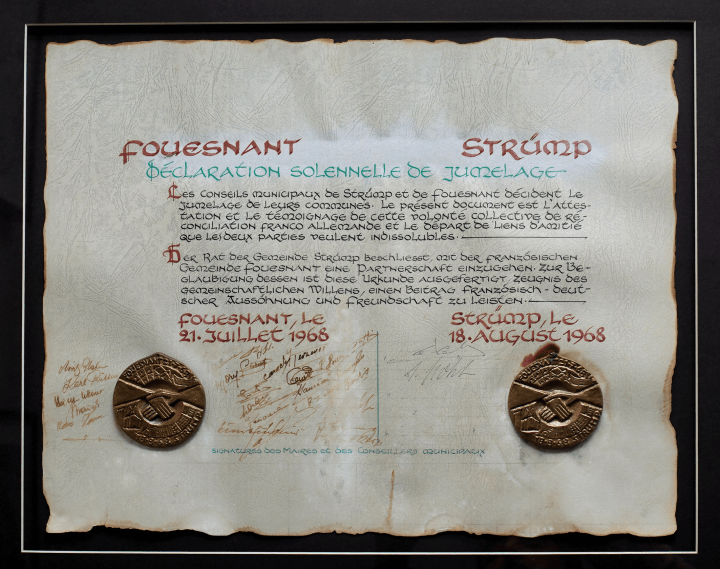 FOUESNANT STRÚMP
DÉCLARATION SOLENNELLE DE JUMELAGE
LES CONSEILS MUNICIPAUX DE STRÚMP ET DE FOUESNANT DÉCIDENT LE
JUMELAGE DE LEURS COMMUNES. LE PRÉSENT DOCUMENT EST L'ATTES-
TATION ET LE TÉMOIGNAGE DE CETTE VOLONTÉ COLLECTIVE DE RÉ-
CONCILIATION FRANCO ALLEMANDE ET LE DÉPART DE LIENS D'AMITIÉ
QUE LES DEUX PARTIES VEULENT INDISSOLUBLES.
DER RAT DER GEMEINDE STRÚMP BESCHLIESST, MIT DER FRANZÖSISCHEN
GEMEINDE FOUESNANT EINE PARTNERSCHAFT EINZUGEHEN. ZUR BE-
GLAUBIGUNG DESSEN IST DIESE URKUNDE AUSGEFERTIGT, ZEUGNIS DES
GEMEINSCHAFTLICHEN WILLENS, EINEN BEITRAG FRANZÖSISCH-DEUT-
SCHER AUSSÖHNUNG UND FREUNDSCHAFT ZU LEISTEN.
FOUESNANT, LE
21. JUILLET 1968
STRÚMP, LE
18. AUGUST 1968
SIGNATURES DES MAIRES ET DES CONSEILLERS MUNICIPAUX